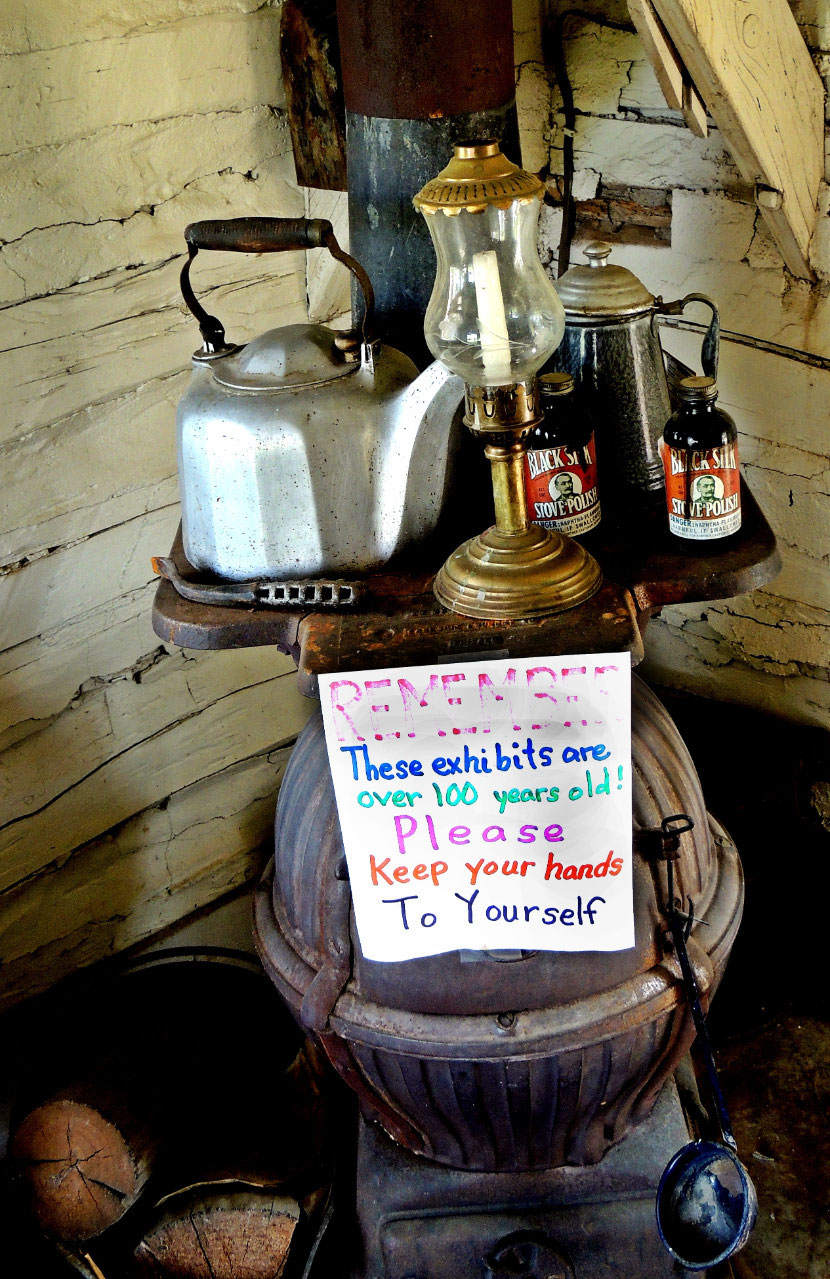 BLACK SILK
STOVE POLISH
BLACK SILK
STOVE POLISH
DANGER:
REMEMBER
These exhibits are
over 100 years old!
Please
Keep your hands
To Yourself